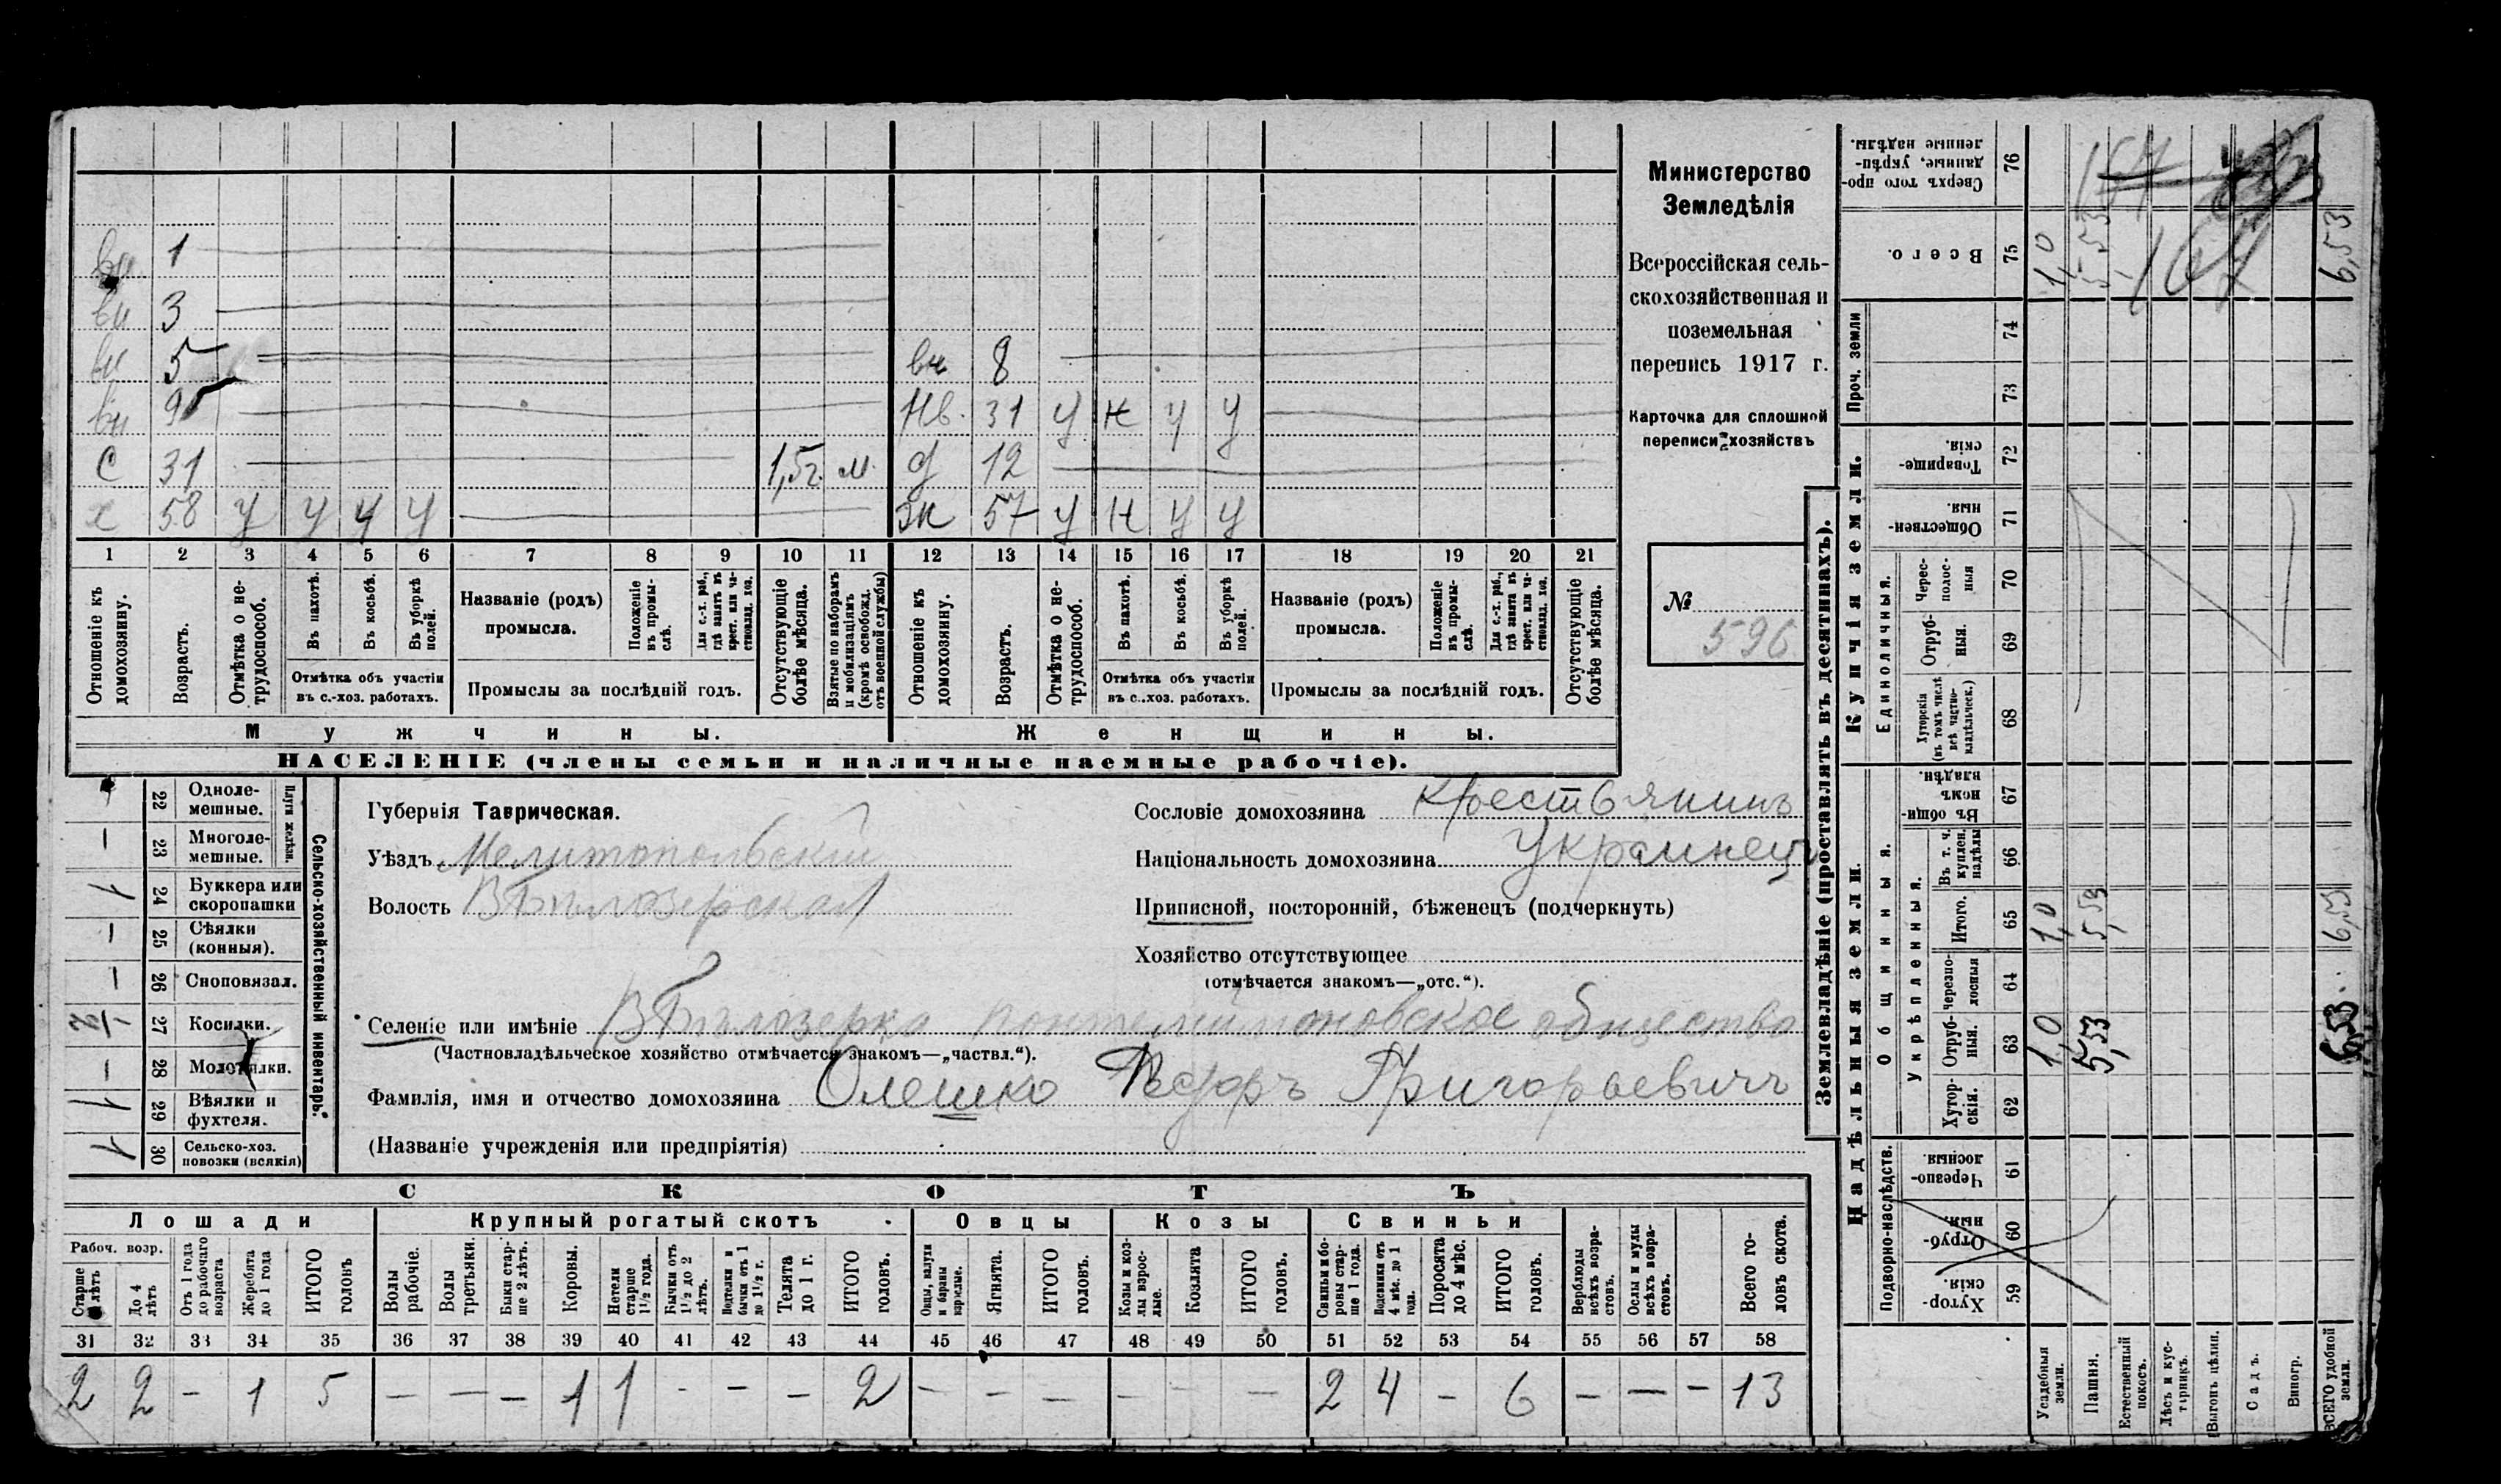 вн 1
вн 3
вн 5 вн 8
вн 9 Нв. 31 у н у у
с 31 1,5 г. м. д 12
х 58 у у у у жн 57 у н у у
1 2 3 4 5 6 7 8 9 10 11 12 13 14 15 16 17 18 19 20 21
Отношеніе къ домохозяину.
Возрастъ.
Отмѣтка о не-трудоспособ.
Въ пахотѣ.
Въ косьбѣ.
Въ уборкѣ полей.
Отмѣтка объ участіи
въ с.-хоз. работахъ.
Названіе (родъ)
промысла.
Положеніе въ промы-слѣ.
Для с.-х. раб., гдѣ занятъ въ крест. или ча-стновлад. хоз.
Промыслы за послѣдній годъ.
Отсутствующіе болѣе мѣсяца.
Взятые по наборамъ и мобилизаціямъ (кромѣ освобожд. отъ военной службы)
Отношеніе къ домохозяину.
Возрастъ.
Отмѣтка о не-трудоспособ.
Въ пахотѣ.
Въ косьбѣ.
Въ уборкѣ полей.
Отмѣтка объ участіи
въ с.-хоз. работахъ.
Названіе (родъ)
промысла.
Положеніе въ промы-слѣ.
Для с.-х. раб., гдѣ занята въ крест. или ча-стновлад. хоз.
Промыслы за послѣдній годъ.
Отсутствующіе болѣе мѣсяца.
Мужчины. Женщины.
НАСЕЛЕНІЕ (члены семьи и наличные наемные рабочіе).
Министерство
Земледѣлія
Всероссійская сель-
скохозяйственная и
поземельная
перепись 1917 г.
Карточка для сплошной
переписи хозяйствъ
№
596
22 Одноле-мешные.
— 23 Многоле-мешные.
Плуги желѣзн.
1 24 Буккера или скоропашки
— 25 Сѣялки (конныя).
— 26 Сноповязал.
27 Косилки.
— 28 Молотилки.
1 29 Вѣялки и фухтеля.
1 30 Сельско-хоз. повозки (всякія)
Сельско-хозяйственный инвентарь.
Губернія Таврическая.
Уѣздъ Мелитопольскій
Волость В Бѣлозерская
Сословіе домохозяина крестьянинъ
Національность домохозяина Украинец
Приписной, посторонній, бѣженецъ (подчеркнуть)
Хозяйство отсутствующее
(отмѣчается знакомъ—„отс.“).
Селеніе или имѣніе В Бѣлозерка Понтелиимоновское общество
(Частновладѣльческое хозяйство отмѣчается знакомъ—„частвл.“).
Фамилія, имя и отчество домохозяина Олешко Федоръ Григорьевичъ
(Названіе учрежденія или предпріятія)
СКОТЪ
Лошади Крупный рогатый скотъ Овцы Козы Свиньи
Рабоч. возр.
Старше лѣтъ
До 4 лѣтъ
Отъ 1 года до рабочаго возраста
Жеребята до 1 года
ИТОГО головъ
Волы рабочіе.
Волы Третьяки.
Быки стар-ше 2 лѣтъ.
Коровы.
Нетели старше 1½ года.
Бычки отъ 1½ до 2 лѣтъ.
Водтелки и бычки отъ 1 до 1½ г.
Телята до 1 г.
ИТОГО головъ.
Овцы, валухи и бараны взрослые.
Ягнята.
ИТОГО головъ.
Козы и коз-лы взрос-лые.
Козлята
ИТОГО головъ.
Свиньи и бо-ровы стар-ше 1 года.
Подсвинки отъ 4 мѣс. до 1 года.
Поросята до 4 мѣс.
ИТОГО головъ.
Верблюды всѣхъ возра-стовъ.
Ослы и мулы всѣхъ возра-стовъ.
Всего го-ловъ скота.
31 32 33 34 35 36 37 38 39 40 41 42 43 44 45 46 47 48 49 50 51 52 53 54 55 56 57 58
2 2 – 1 5 — — — 1 1 - - — 2 — — — — — — 2 4 – 6 — — – 13
Землевладѣніе (проставлять въ десятинахъ).
Купчія земли.
Надѣльныя земли.
Сверхъ того про-данные, укрѣп-ленные надѣлы. 76
Всего. 75 1,0 5,53 6,53
167
Проч. земли 74 73
Товарище-скія. 72
Обществен-ныя. 71
Единоличныя.
Черес-полос-ныя 70
Отруб-ныя. 69
Хуторскія (въ томъ числѣ всѣ частно-владѣльческ.) 68
Общинныя.
Въ общин-номъ владѣн. 67
Укрѣпленныя.
Въ т. ч. куплен. надѣлы 66
Итого. 65 1,0 5,53 6,53
Черезпо-лосныя 64
Отруб-ныя. 63 1,0 5,53 6,53
Хутор-скія. 62
Подворно-наслѣдств.
Черезпо-лосныя. 61
Отруб-ныя. 60
Хутор-скія. 59
Усадебныя земли.
Пашня.
Естественный покосъ.
Лѣсъ и кус-тарникъ.
Выгонъ цѣлин.
Садъ.
Виногр.
ВСЕГО удобной земли.